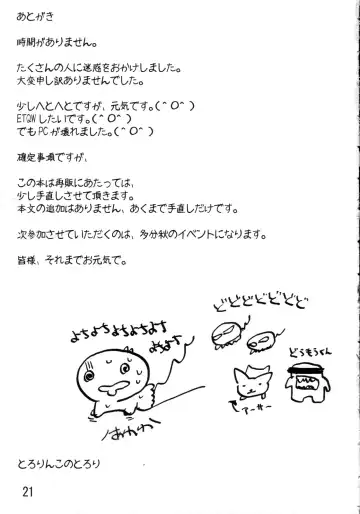 あとがき
時間がありません。
たくさんの人に迷惑をおかけしました。
大変申し訳ありませんでした。
少しへとへとですが、元気です。(＾O＾)
ETQWしたいです。(＾O＾)
でもPCが壊れました。(＾O＾)
確定事項ですが、
この本は再販にあたっては、
少し手直しさせて頂きます。
本文の追加はありません、あくまで手直しだけです。
次参加させていただくのは、多分秋のイベントになります。
皆様、それまでお元気で。
どどどどどどど
よちよちよちよちよち
よちよち
どらもちゃん
アーサー
はわわ
とろりんこのとろり
21